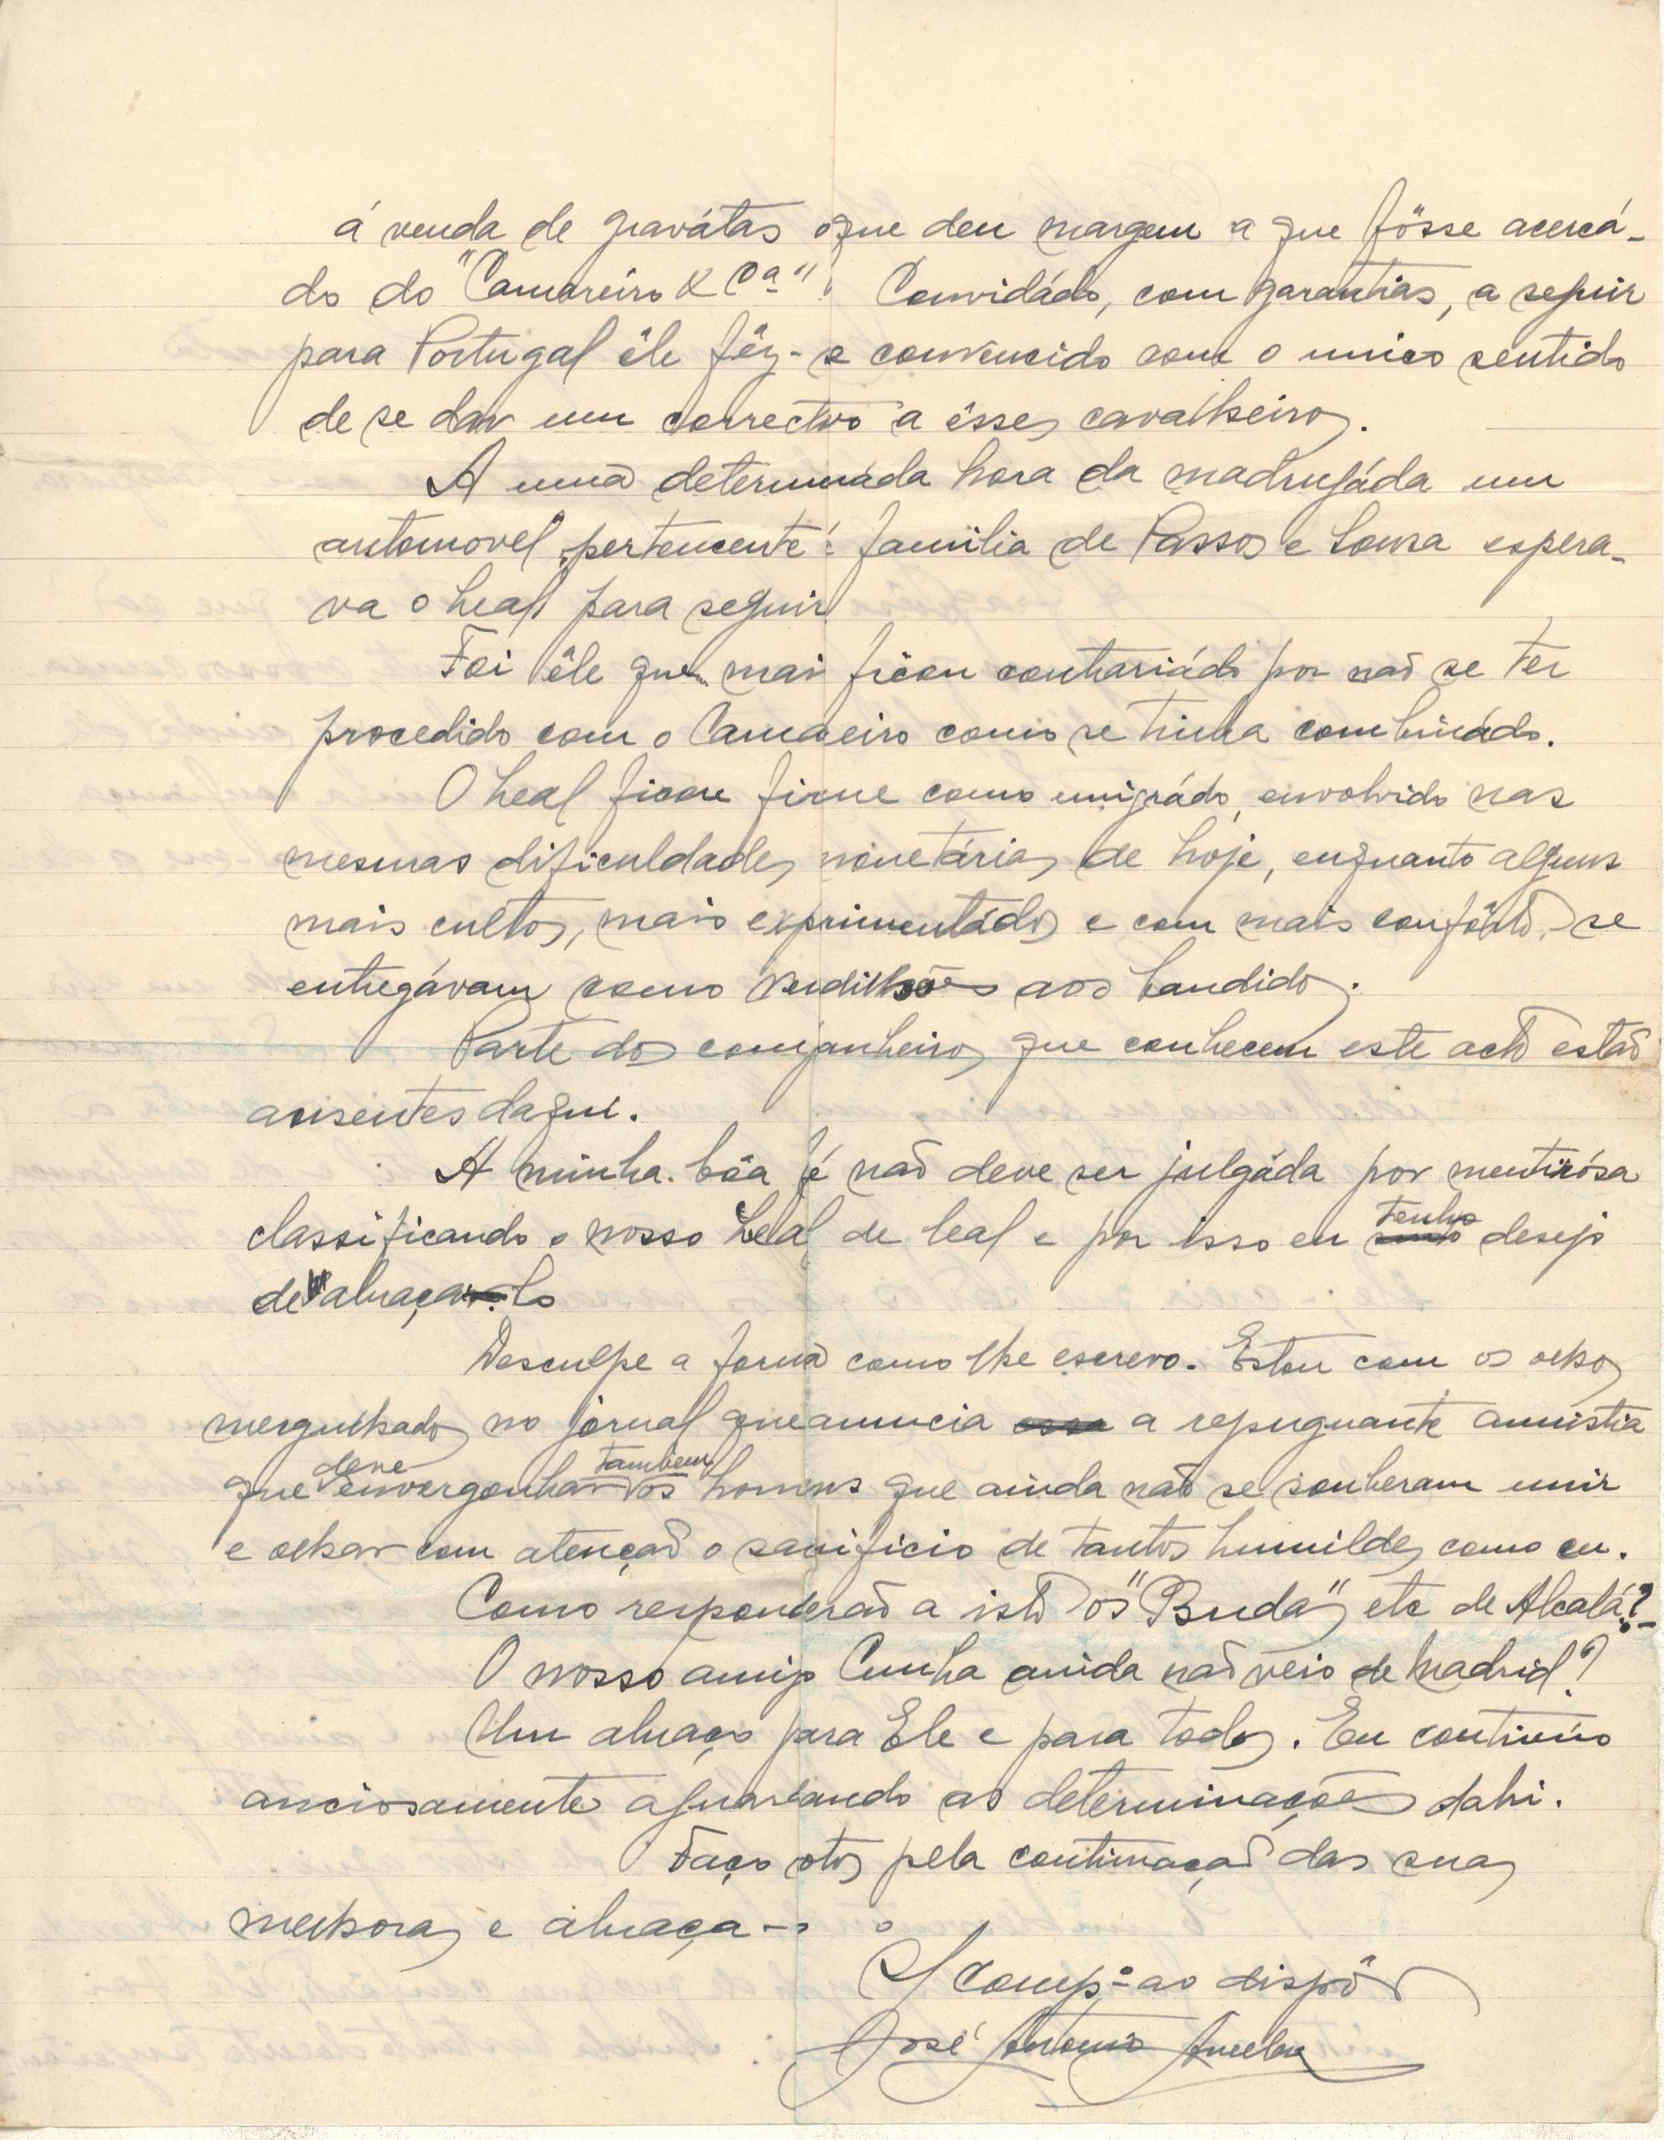 á venda de gravátas oque deu margem a que fôsse acercá-
do do "Camareiro & Cª". Convidádo, com garantias, a seguir
para Portugal êle fêz-se convencido com o unico sentido
de se dar um correctivo a êsses cavalheiros.
A uma determináda hora da madrugáda um
automovel pertencente á familia de Passos e Sousa espera-
va o Leal para seguir.
Foi êle que mais ficou contrariádo por não se ter
procedido com o Camareiro como se tinha combinádo.
O Leal ficou firme como emigrádo, envolvido nas
mesmas dificuldades monetárias de hoje, enquanto alguns
mais cultos, mais exprimentádos e com mais confôrto, se
entregávam como vendilhões aos bandidos.
Parte dos companheiros que conhecem este acto estão
ausentes daqui.
A minha bôa fé não deve ser julgáda por mentirósa
classificando o nosso Leal de leal e por isso eu tenho desejo
de abraça-lo
Desculpe a forma como lhe escrevo. Estou com os olhos
mergulhados no jornal que anuncia a repugnante amnistia
que deve envergonhar tambem os homens que ainda não se souberam unir
e olhar com atenção o sacrificio de tantos humildes como eu.
Como responderão a isto os "Budas" etc de Alcalá?
O nosso amigo Cunha ainda não veio de Madrid?
Um abraço para Ele e para todos. Eu continúo
anciosamente aguardando as determinações dahi.
Faço votos pela continuação das suas
melhoras e abraça-o o
Compº ao dispôr
José Antonio